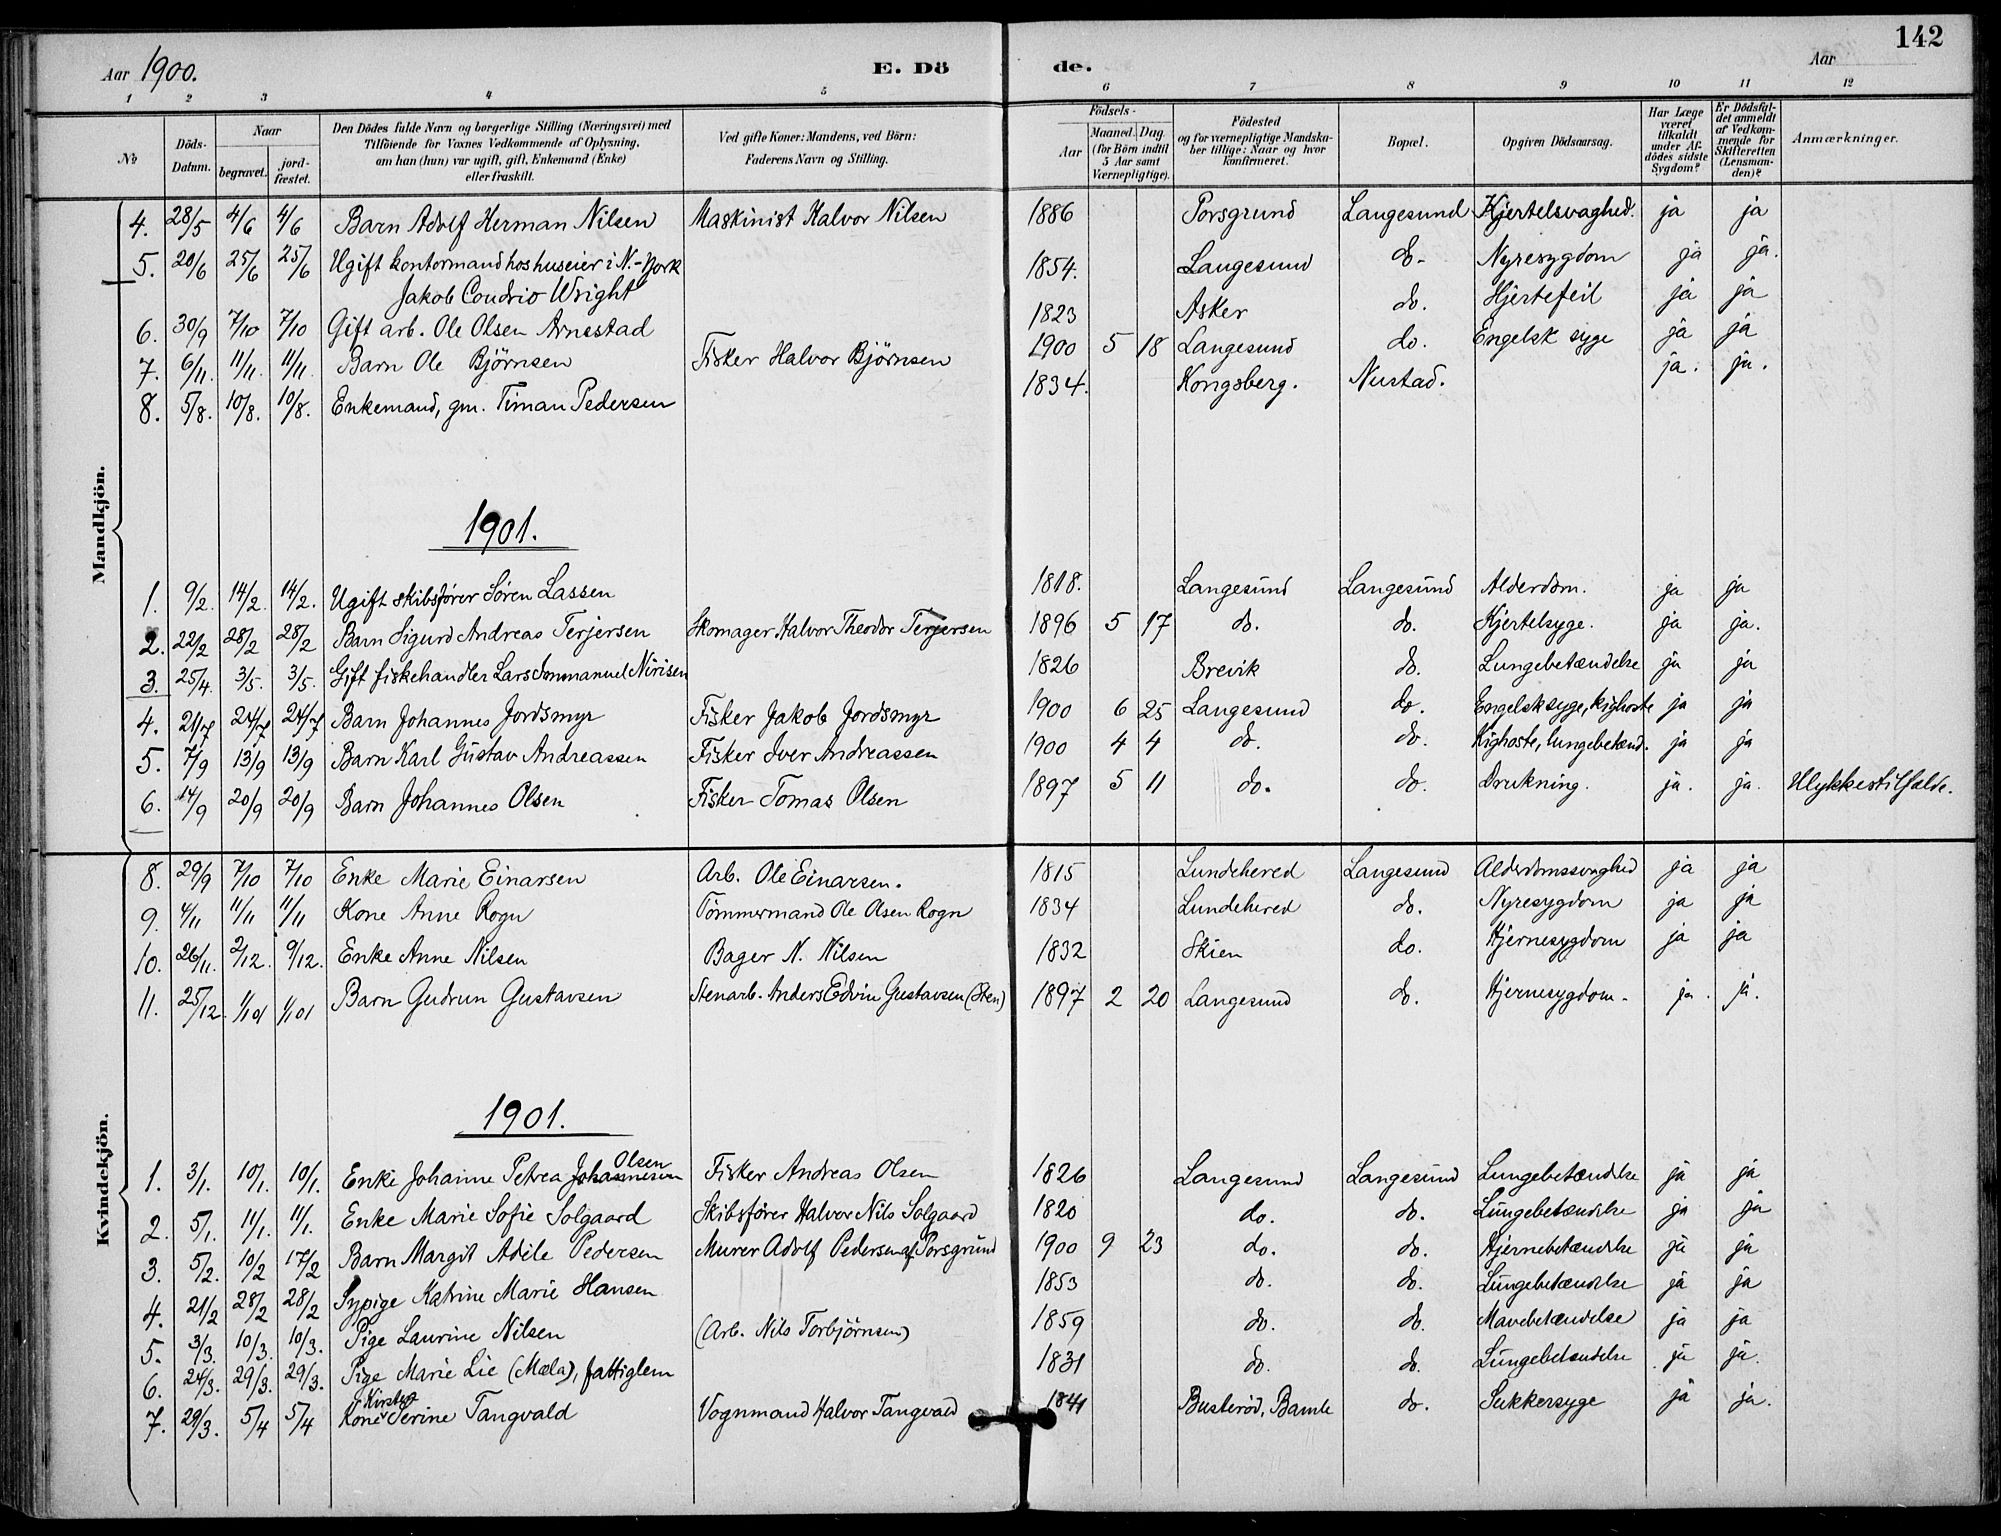 142
Aar 1900. E. Dö de. Aar
1 2 3 4 5 6 7 8 9 10 11 12
No
Döds-Datum.
Naar
begravet.
jord-fæstet.
Den Dödes fulde Navn og borgerlige Stilling (Næringsvei) med
Tilföiende for Voxnes Vedkommende af Oplysning,
om han (hun) var ugift, gift, Enkemand (Enke)
eller fraskilt.
Ved gifte Koner: Mandens, ved Börn:
Faderens Navn og Stilling.
Födsels-
Aar
Maaned. Dag.
(for Börn indtil
5 Aar samt
Værnepligtige).
Födested
og for værnepligtige Mandska-
ber tillige: Naar og hvor
konfirmeret.
Bopæl.
Opgiven Dödsaarsag.
Har Læge
været
tilkaldt
under Af-
dödes sidste
Sygdom?
Er Dödsfal-
det anmeldt
af Vedkom-
mende for
Skifteretten
(Lensman-
den)?
Anmærkninger.
Mandkjön.
4. 28/5 4/6 4/6 Barn Adolf Herman Nilsen Maskinist Halvor Nilsen 1886 Porsgrund Langesund Kjertelsvaghed. ja ja
5. 20/6 25/6 25/6 Ugift kontormand hos huseier i N.-York 1854. Langesund do- Nyresygdom ja ja.
Jakob Coudrio Wright
6. 30/9 7/10 7/10 Gift arb. Ole Olsen Arnestad 1823 Asker do. Hjertefeil ja ja
7. 6/11. 11/11. 11/11. Barn Ole Björnsen Fisker Halvor Björnsen 1900 5 18 Langesund do. Engelsk syge ja ja
8. 5/8. 10/8. 10/8. Enkemand, gm. Timan Pedersen 1834. Kongsberg. Nustad. ja. ja.
1901.
1. 9/2. 14/2. 14/2. Ugift skibsförer Sören Lassen 1818. Langesund Langesund Alderdom. ja ja
2. 22/2 28/2 28/2 Barn Sigurd Andreas Terjersen Skomager Halvor Theodor Terjersen 1896 5 17 do. do. Kjertelsyge. ja ja.
3. 25/4. 3/5. 3/5. Gift fiskehandler Lars Immanuel Nirisen 1826 Brevik do. Lungebetændelse ja ja
4. 21/7 24/7 24/7 Barn Johannes Jordsmyr Fisker Jakob Jordsmyr 1900 6 25 Langesund do. Engelsk syge, kighoste ja ja
5. 7/9 13/9 13/9 Barn Karl Gustav Andreassen Fisker Iver Andreassen 1900 4 4 do. do. Kighoste, lungebetænd. ja ja
6. 14/9 20/9 20/9 Barn Johannes Olsen Fisker Tomas Olsen 1897 5 11 do. do. Drukning. ja. ja. Ulykkestilfælde.
Kvindekjön.
8. 29/9 7/10 7/10 Enke Marie Einarsen Arb. Ole Einarsen. 1815 Lundehered Langesund Alderdomssvaghed ja ja
9. 4/11 11/11 11/11 Kone Anne Rogn Tömmermand Ole Olsen Rogn 1834 Lundehered do. Nyresygdom ja ja
10. 26/11. 2/12. 9/12. Enke Anne Nilsen Bager N. Nilsen 1832 Skien do. Hjernesygdom ja ja
11. 25/12. 1/1 01 1/1 01 Barn Gudrun Gustavsen Stenarb. Anders Edvin Gustavsen (Sten) 1897 2 20 Langesund do. Hjernesygdom. ja. ja.
1901.
1. 3/1. 10/1. 10/1. Enke Johanne Petrea Johannesen Olsen Fisker Andreas Olsen 1826 Langesund Langesund Lungebetændelse ja ja
2. 5/1. 11/1. 11/1. Enke Marie Sofie Solgaard Skibsförer Halvor Nils Solgaard 1820 do. do. Lungebetændelse ja ja
3. 5/2. 10/2 17/2 Barn Margit Adele Pedersen Murer Adolf Pedersen af Porsgrund 1900 9 23 do. do. Hjernebetændelse ja ja
4. 21/2 28/2 28/2 Sypige Katrine Marie Hansen 1853 do. do. Lungebetændelse ja ja
5. 3/3. 10/3. 10/3. Pige Laurine Nilsen (Arb. Nils Torbjörnsen) 1859 do. do. Mavebetændelse ja ja
6. 24/3. 29/3. 29/3. Pige Marie Lie (Mæla), fattiglem 1831 do. do. Lungebetændelse ja ja.
7. 29/3. 5/4 5/4 Kone Kirsten Serine Tangvald Vognmand Halvor Tangvald 1841 Busteröd, Bamle do. Sukkersyge ja ja.